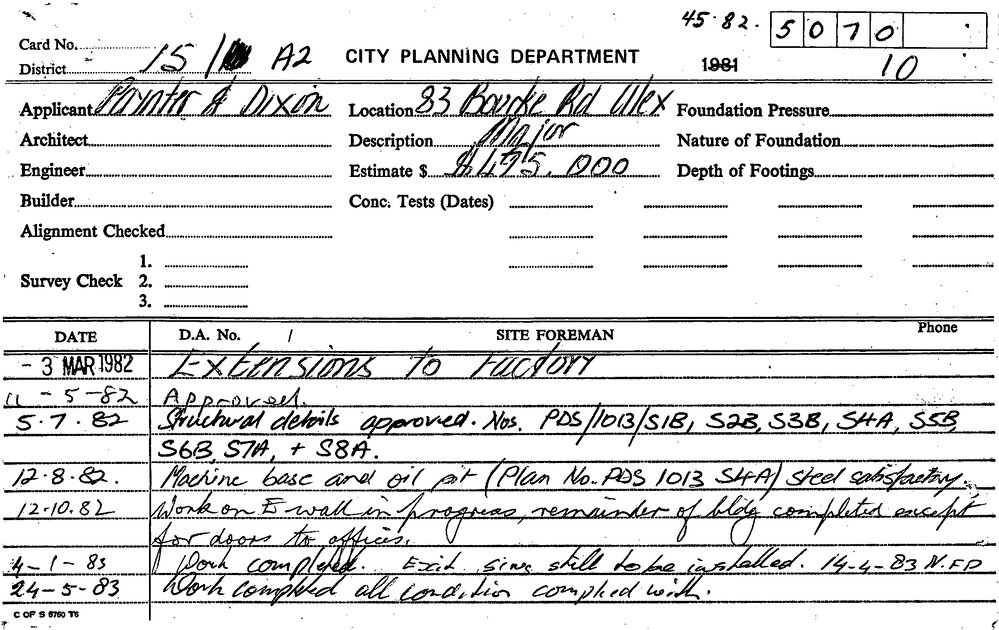 45·82. 5070
Card No.
District 15/ A2 CITY PLANNING DEPARTMENT 1981 10
Applicant Paynter & Dixon Location 83 Bourke Rd Alex Foundation Pressure
Architect Description Major Nature of Foundation
Engineer Estimate $ $475.000 Depth of Footings
Builder Conc. Tests (Dates)
Alignment Checked
1.
Survey Check 2.
3.
DATE D.A. No. / SITE FOREMAN Phone
- 3 MAR 1982 Extensions to Factory
11-5-82 Approved.
5.7.82 Structural details approved. Nos. PDS/1013/S1B, S2B, S3B, S4A, S5B,
S6B, S7A, + S8A.
12.8.82. Machine base and oil pit (Plan No. PDS 1013 S4A) steel satisfactory.
12.10.82 Work on E wall in progress, remainder of bldg completed except
for doors to offices.
4-1-83 Work completed. Exit sins still to be installed. 14-4-83 N.FD
24-5-83 Work completed all condition complied with.
C OF S 6760 T6